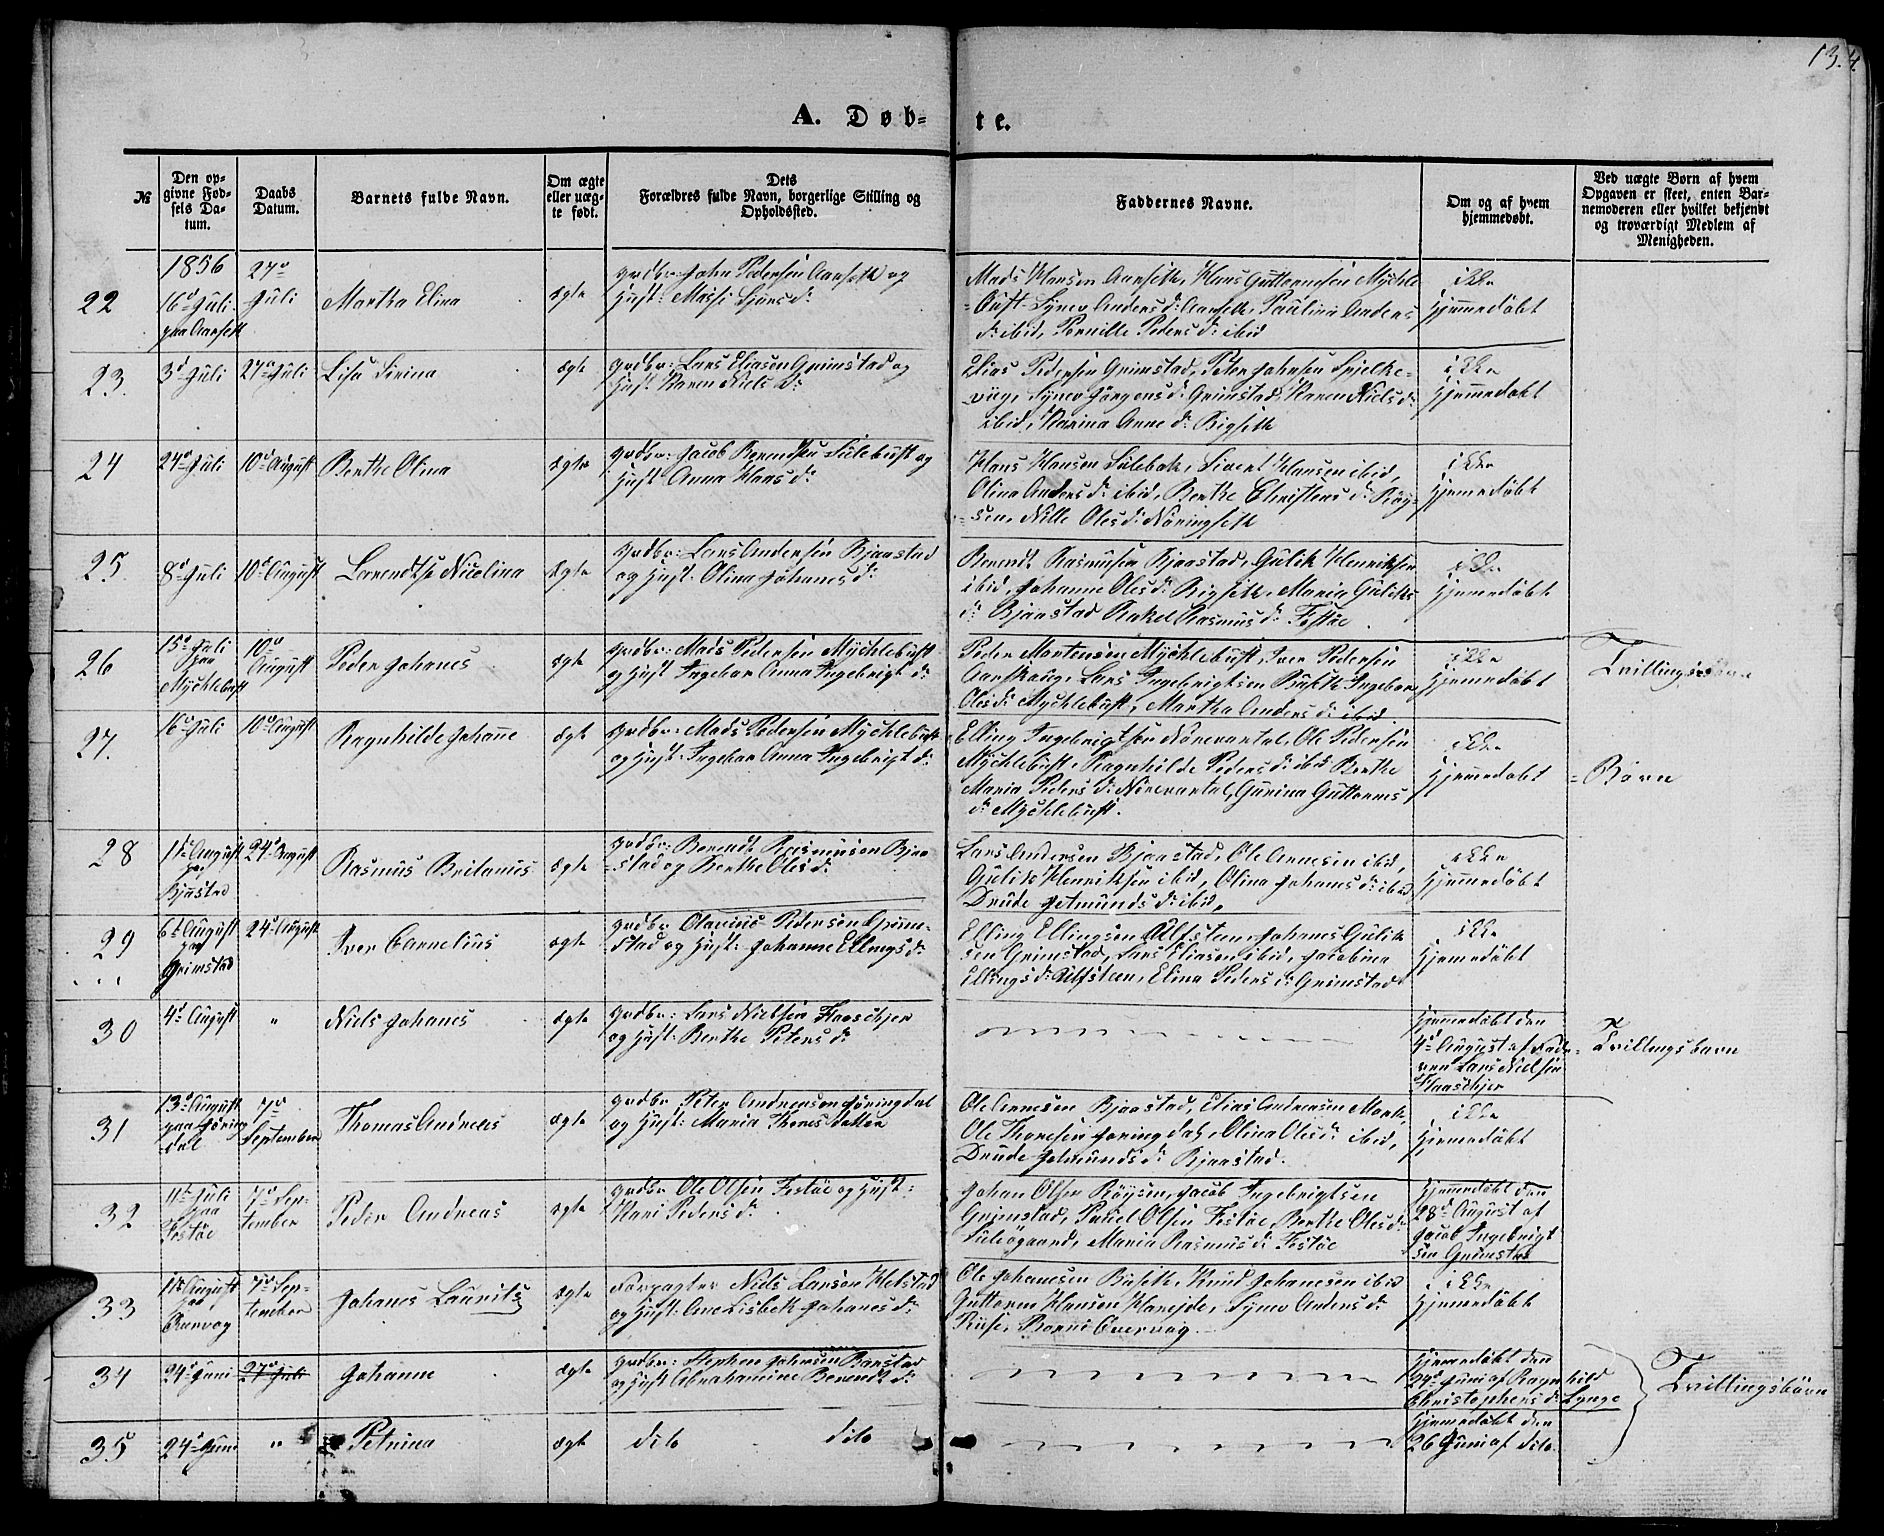 13.4.
A. Døb-
te.
№
Den op-
givne Fød-
sels Da-
tum.
Daabs
Datum.
Barnets fulde Navn.
Om ægte
eller uæg-
te født.
Dets
Forældres fulde Navn, borgerlige Stilling og
Opholdssted.
Faddernes Navne.
Om og af hvem
hjemmedøbt.
Ved uægte Børn af hvem
Opgaven er skeet, enten Bar-
nemoderen eller hvilket bekjendt
og troværdigt Medlem af
Menigheden.
22
1856
16de Juli
paa Aarseth
27de
Juli
Martha Elina
ægte
grdbr: John Pedersen Aarseth og
Hust: Massi Sjurs d:
Mads Hansen Aarseth, Hans Guttormsen Myckle-
bust, Synev Anders d: Aarseth, Paulina Anders
d: ibid, Pernille Peders d: ibid
ikke
hjemmedøbt
23.
3d Juli
27de Juli
Lisa Sirina
ægte
grdbr: Lars Eliasen Grimstad og
Hust: Karen Niels d:
Elias Pedersen Grimstad, Peter Johnsen Spjelke-
viig, Synev Jørgens d: Grimstad, Karen Niels d:
ibid, Karina Anne d: Bigseth
ikke
hjemmedøbt
24
24de Juli
10de August
Berthe Olina
ægte
grdbr: Jacob Berendsen Sulebust og
Hust: Anna Hans d:
Hans Hansen Sulebak, Sivert Hansen ibid,
Olina Anders d: ibid, Berthe Christens d: Røy-
sen, Nille Oles d: Nøringseth
ikke
hjemmedøbt
25
8de Juli
10de August
Larendtse Nicolina
ægte
grdbr: Lars Andersen Bjaastad
og Hust: Olina Johanes d:
Berendt Rasmusen Bjaastad, Gulik Henriksen
ibid, Johanne Oles d: Bigseth, Maria Guliks
d: Bjaastad Rakel Rasmus d: Festøe
ikke
hjemmedøbt
26
15de Juli
paa
Mychlebust
10de
August
Peder Johanes
ægte
grdbr: Mads Pedersen Mychlebust
og Hust Ingebor Anna Ingebrigt d:
Peder Mortensen Mychlebust, Iver Pedersen
Aarskoug, Lars Ingebrigtsen Buseth Ingebor
Oles d: Mychlebust, Martha Anders d: ibid.
ikke
hjemmedøbt
Tvillings
27.
16de Juli
10de August
Ragnhilde Johanne
ægte
grdbr: Mads Pedersen Mychlebust
og Hust: Ingebor Anna Ingebrigt d:
Elling Ingebrigtsen Nørevartdal, Ole Pedersen
Mychlebust, Ragnhilde Peders d: ibid Berthe
Maria Peders d: Nørevartdal, Gurina Guttorms
d: Mychlebust.
ikke
hjemmedøbt
= Børn
28
11te August
paa
Bjastad
24de August
Rasmus Britanus
ægte
grdbr: Berendt Rasmusen Bjaa
stad og Berthe Oles d:
Lars Andersen Bjaastad, Ole Arnesen ibid,
Gulik Henriksen ibid, Olina Johanes d: ibid
Drude Jetmunds d: ibid,
ikke
hjemmedøbt
29
6te August
paa
Grimstad
24de August
Iver Cornelius
ægte
grdbr: Olavius Pedersen Grim-
stad og Hust: Johanne Ellings d:
Elling Ellingsen Ulfsteen, Johanes Gulik-
sen Grimstad, Lars Eliasen ibid, Jacobina
Ellings d: Ulfsteen, Elina Peders d: Grimstad
ikke
hjemmedøbt
30
4de August
"
Niels Johanes
ægte
grdbr: Lars Nielsen Flaaschjer
og Hust: Berthe Peters d:
hjemmedøbt den
4de August af Fade-
ren Lars Nielsen
Flaaschjer
Tvillingsbarn
31
13de August
paa Jøring
dal
7de
September
Thomas Andreas
ægte
grdbr Peter Andreasen Jøringdal
og Hust: Maria Thores datter
Ole Arnesen Bjaastad, Elias Andreasen Mork,
Ole Thoresen Jøringdal, Olina Oles d: ibid,
Drude Jetmunds d: Bjaastad.
ikke
hjemmedøbt
32
11te Juli
paa
Festøe
7de Sep-
tember
Peder Andreas
ægte
grdbr Ole Olsen Festøe og Hust:
Mari Peders d:
Johan Olsen Røysen, Jacob Ingebrigtsen
Grimstad, Paul Olsen Festøe, Berthe Oles d:
Suleøgaard, Maria Rasmus d: Festøe
hjemmedøbt den
28de August af
Jacob Ingebrigt
sen Grimstad
33
11te August
paa
7de Sep-
tember
Johanes Laurits
ægte
Forpagter Niels Larsen Helstad
og Hust: Ane Lisbeth Johanes d:
Ole Johanesen Buseth, Knud Johanesen ibid
Guttorm Hansen Hareide, Synev Anders d:
Riise, Barni Overvaag
ikke
hjemmedøbt
34
24de Juni
27de Juli
Johanne
ægte
grdbr: Stephen Johnsen Barstad
og Hust Abrahamine Berendt d:
hjemmedøbt den
24de Juni af Ragnhild
Christophers d: Lynge
Tvillingsbørn
35
24de Juni
"
Petrina
ægte
dito dito
hjemmedøbt den
26 Juni af dito